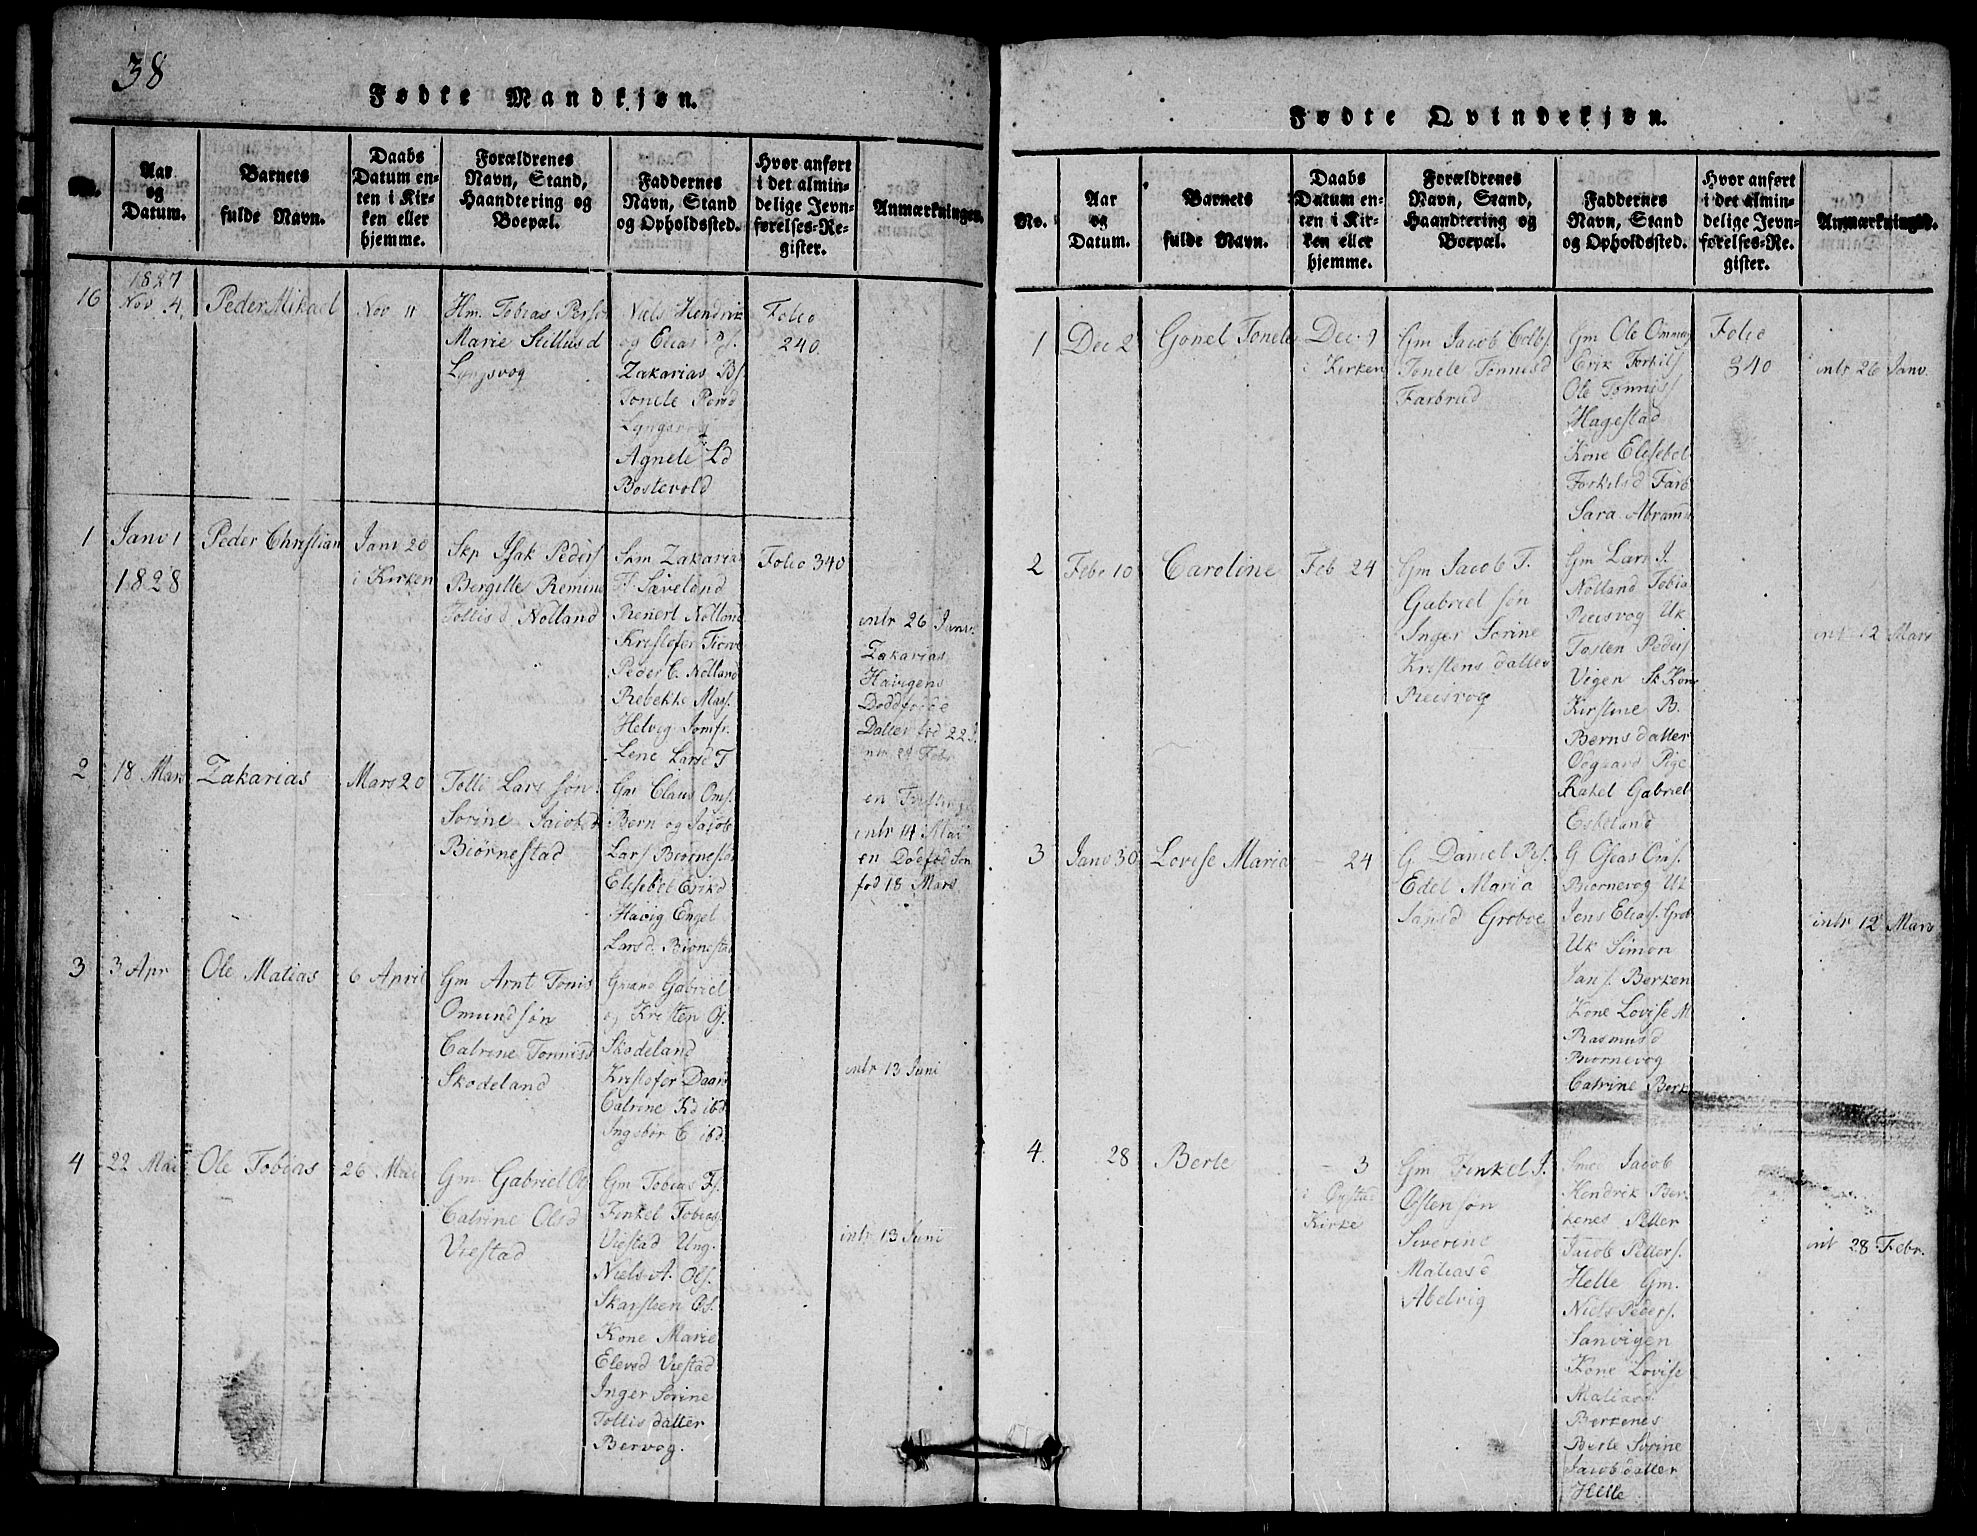 38
Fødte Mandkjøn.
No.
Aar
og
Datum.
Barnets
fulde Navn.
Daabs
Datum en-
ten i Kir-
ken eller
hjemme.
Forældrenes
Navn, Stand,
Haandtering og
Boepæl.
Faddernes
Navn, Stand
og Opholdssted.
Hvor anført
i det almin-
delige Jevn-
førelses-Re-
gister.
Anmærkninger.
16
1827
Nov 4.
Peder Mikael
Nov 11
Hm. Tobias Perso
Marie Sillusd
Lyngsvog
Niels Hendrik
og Elias
Zakarias
Tonele
Lyngsvog
Agnete Ld
Bostevold
Folio
240.
1
Janv 1
1828
Peder Christian
Janv 20
i Kirken
Skp Isak Peders
Bergitte Remine
Tollisd Nolland
Skm Zakarias
F. Sæveland
Renert Nolland
Kristofer
Peder C. Nolland
Rebekke
Helvig Jomfr.
Lene Larsd T
Folio 340
intr 26 Janv.
Zakarias
Havigens
Dødfødde
Datter fød 22 J.
intr 29 Febr
2
18 Mars
Zakarias
Mars 20
Tolli Larssøn
Sorine Jacobsd
Biørnestad
Gm Claus Oms.
Bern og Jacob
Lars Biørnestad
Elisebet Erikd
Havig Engel
Larsd. Biørnestad
intr 14 Mai
en Dødfød Søn
fød 18 Mars
3
3 Apr
Ole Matias
6 April
Gm Arnt Tønis
Omundsøn
Catrine Tønnisd
Skodeland
Gabriel
og Kristen Os.
Skodeland
Kristofer Daan
Catrine Kd ibd
Ingebør C ibd
intr 13 Juni
4
22 Mai
Ole Tobias
26 Mai
Gm Gabriel Os
Catrine Olsd
Viestad
Gm Tobias Fs.
Finkel Tobias
Viestad Ung.
Niels A. Ols.
Skarsteen Gs.
Kone Marie
Elevsd Viestad
Inger Sorine
Tollisdatter
Bervog.
intr 13 Juni
Fødte Qvindekjøn.
No.
Aar
og
Datum.
Barnets
fulde Navn.
Daabs
Datum en-
ten i Kir-
ken eller
hjemme.
Forældrenes
Navn, Stand,
Haandtering og
Boepæl.
Faddernes
Navn, Stand
og Opholdssted.
Hvor anført
i det almin-
delige Jevn-
førelses-Re-
gister.
Anmærkninger.
1
Dec 2
Gonel Tonele
Dec. 9
i Kirken
Gm Jacob Colbs.
Tonele Tønnisd
Farbrud
Gm Ole Ommus
Erik Torkils
Ole Tønnis
Hagestad
Kone Elisebet
Torkilsd Farb
Sara Abrams
Folio
340
intr 26 Janv.
2
Febr 10
Caroline
Feb 24
Gm Jacob T.
Gabrielsøn
Inger Sorine
Kristensdatter
Reesvog
Gm Lars J.
Nolland Tobia
Reesvog Uk
Tosten Peders
Vigen Sk Kone
Kirstine B.
Bernsdatter
Odgaard Pige
Rakel Gabriel
Eskeland
intr 12 Mars
3
Janv 30
Lovise Maria
- 24
G Daniel Rs.
Edel Maria
Jansd Groboe
G Oseas Oms.
Biørnevog Uk
Jens Elias. Grob
Uk Simon
Jans. Berken
Kone Lovise M
Rasmusd
Biørnevog
Catrine Berk
intr 12 Mars
4.
28
Berte
- 3
i
Kirke
Gm Finkel J.
Ostensøn
Siverine
Matiasd
Abelvig
Jacob
Hendrik Ber
kenes Petter
Jacob Petters.
Helle Gm.
Niels Peders.
Sanvigen
Kone Lovise
Matiasd
Berkenes
Berte Sorine
Jacobdatter
Helle
int 28 Febr.